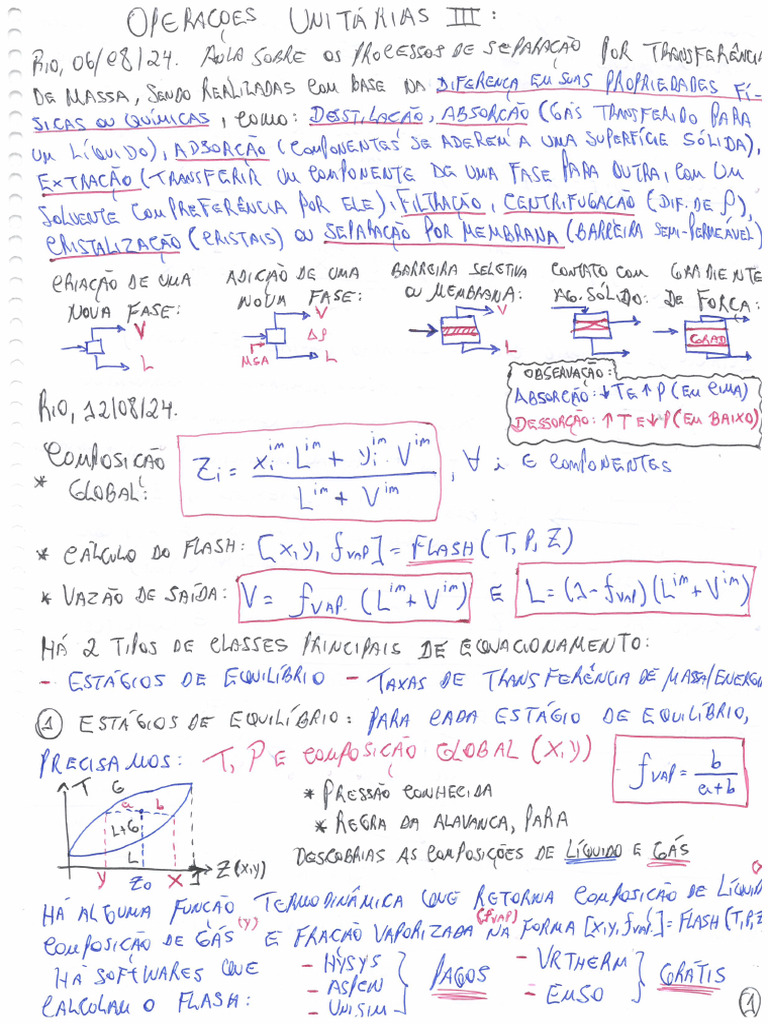 OPERAÇÕES UNITÁRIAS III:
RIO, 06/08/24. AULA SOBRE OS PROCESSOS DE SEPARAÇÃO POR TRANSFERÊNCIA
DE MASSA, SENDO REALIZADAS COM BASE NA DIFERENÇA EM SUAS PROPRIEDADES FÍ-
SICAS OU QUÍMICAS, COMO: DESTILAÇÃO, ABSORÇÃO (GÁS TRANSFERIDO PARA
UM LÍQUIDO), ADSORÇÃO (COMPONENTES SE ADEREM A UMA SUPERFÍCIE SÓLIDA),
EXTRAÇÃO (TRANSFERIR UM COMPONENTE DE UMA FASE PARA OUTRA, COM UM
SOLVENTE COM PREFERÊNCIA POR ELE), FILTRAÇÃO, CENTRIFUGAÇÃO (DIF. DE ρ),
CRISTALIZAÇÃO (CRISTAIS) OU SEPARAÇÃO POR MEMBRANA (BARREIRA SEMI-PERMEÁVEL)
CRIAÇÃO DE UMA NOVA FASE:
V
L
ADIÇÃO DE UMA NOVA FASE:
V
Δρ
MSA
L
BARREIRA SELETIVA OU MEMBRANA:
V
L
CONTATO COM AG. SÓLIDO:
GRADIENTE DE FORÇA:
GRAD
OBSERVAÇÃO:
ABSORÇÃO: ↓T E ↑P (EM CIMA)
DESSORÇÃO: ↑T E ↓P (EM BAIXO)
RIO, 12/08/24.
* COMPOSIÇÃO GLOBAL: Zi = (xi^im · L^im + yi^im · V^im) / (L^im + V^im), ∀ i ∈ COMPONENTES
* CÁLCULO DO FLASH: [X, Y, fVAP] = FLASH (T, P, Z)
* VAZÃO DE SAÍDA: V = fVAP. (L^im + V^im) E L = (1 - fVAP) (L^im + V^im)
HÁ 2 TIPOS DE CLASSES PRINCIPAIS DE EQUACIONAMENTO:
- ESTÁGIOS DE EQUILÍBRIO - TAXAS DE TRANSFERÊNCIA DE MASSA/ENERGIA
① ESTÁGIOS DE EQUILÍBRIO: PARA CADA ESTÁGIO DE EQUILÍBRIO,
PRECISAMOS: T, P E COMPOSIÇÃO GLOBAL (X, Y)
fVAP = b / (a+b)
T
G
a b
L+G
L
Z (X,Y)
Y Z0 X 1
* PRESSÃO CONHECIDA
* REGRA DA ALAVANCA, PARA
DESCOBRIAS AS COMPOSIÇÕES DE LÍQUIDO E GÁS
HÁ ALGUMA FUNÇÃO TERMODINÂMICA QUE RETORNA COMPOSIÇÃO DE LÍQUIDO (X)
COMPOSIÇÃO DE GÁS (Y) E FRAÇÃO VAPORIZADA (fVAP) NA FORMA [X, Y, fVAP.] = FLASH (T, P, Z)
HÁ SOFTWARES QUE CALCULAM O FLASH:
- HYSYS
- ASPEN
- UNISIM
PAGOS
- VRTHERM
- EMSO
GRÁTIS
①